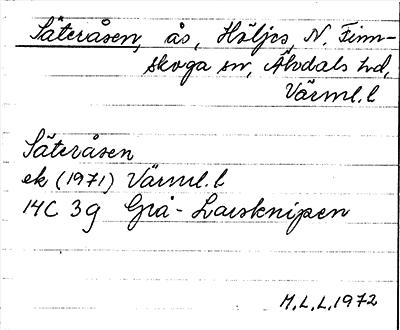 Säteråsen, ås, Höljes, N. Finn-
skoga sn, Älvdals hd,
Värml. l
Säteråsen
ek (1971) Värml. l
14C 3g Grå-Larsknipen
M.L.L. 1972